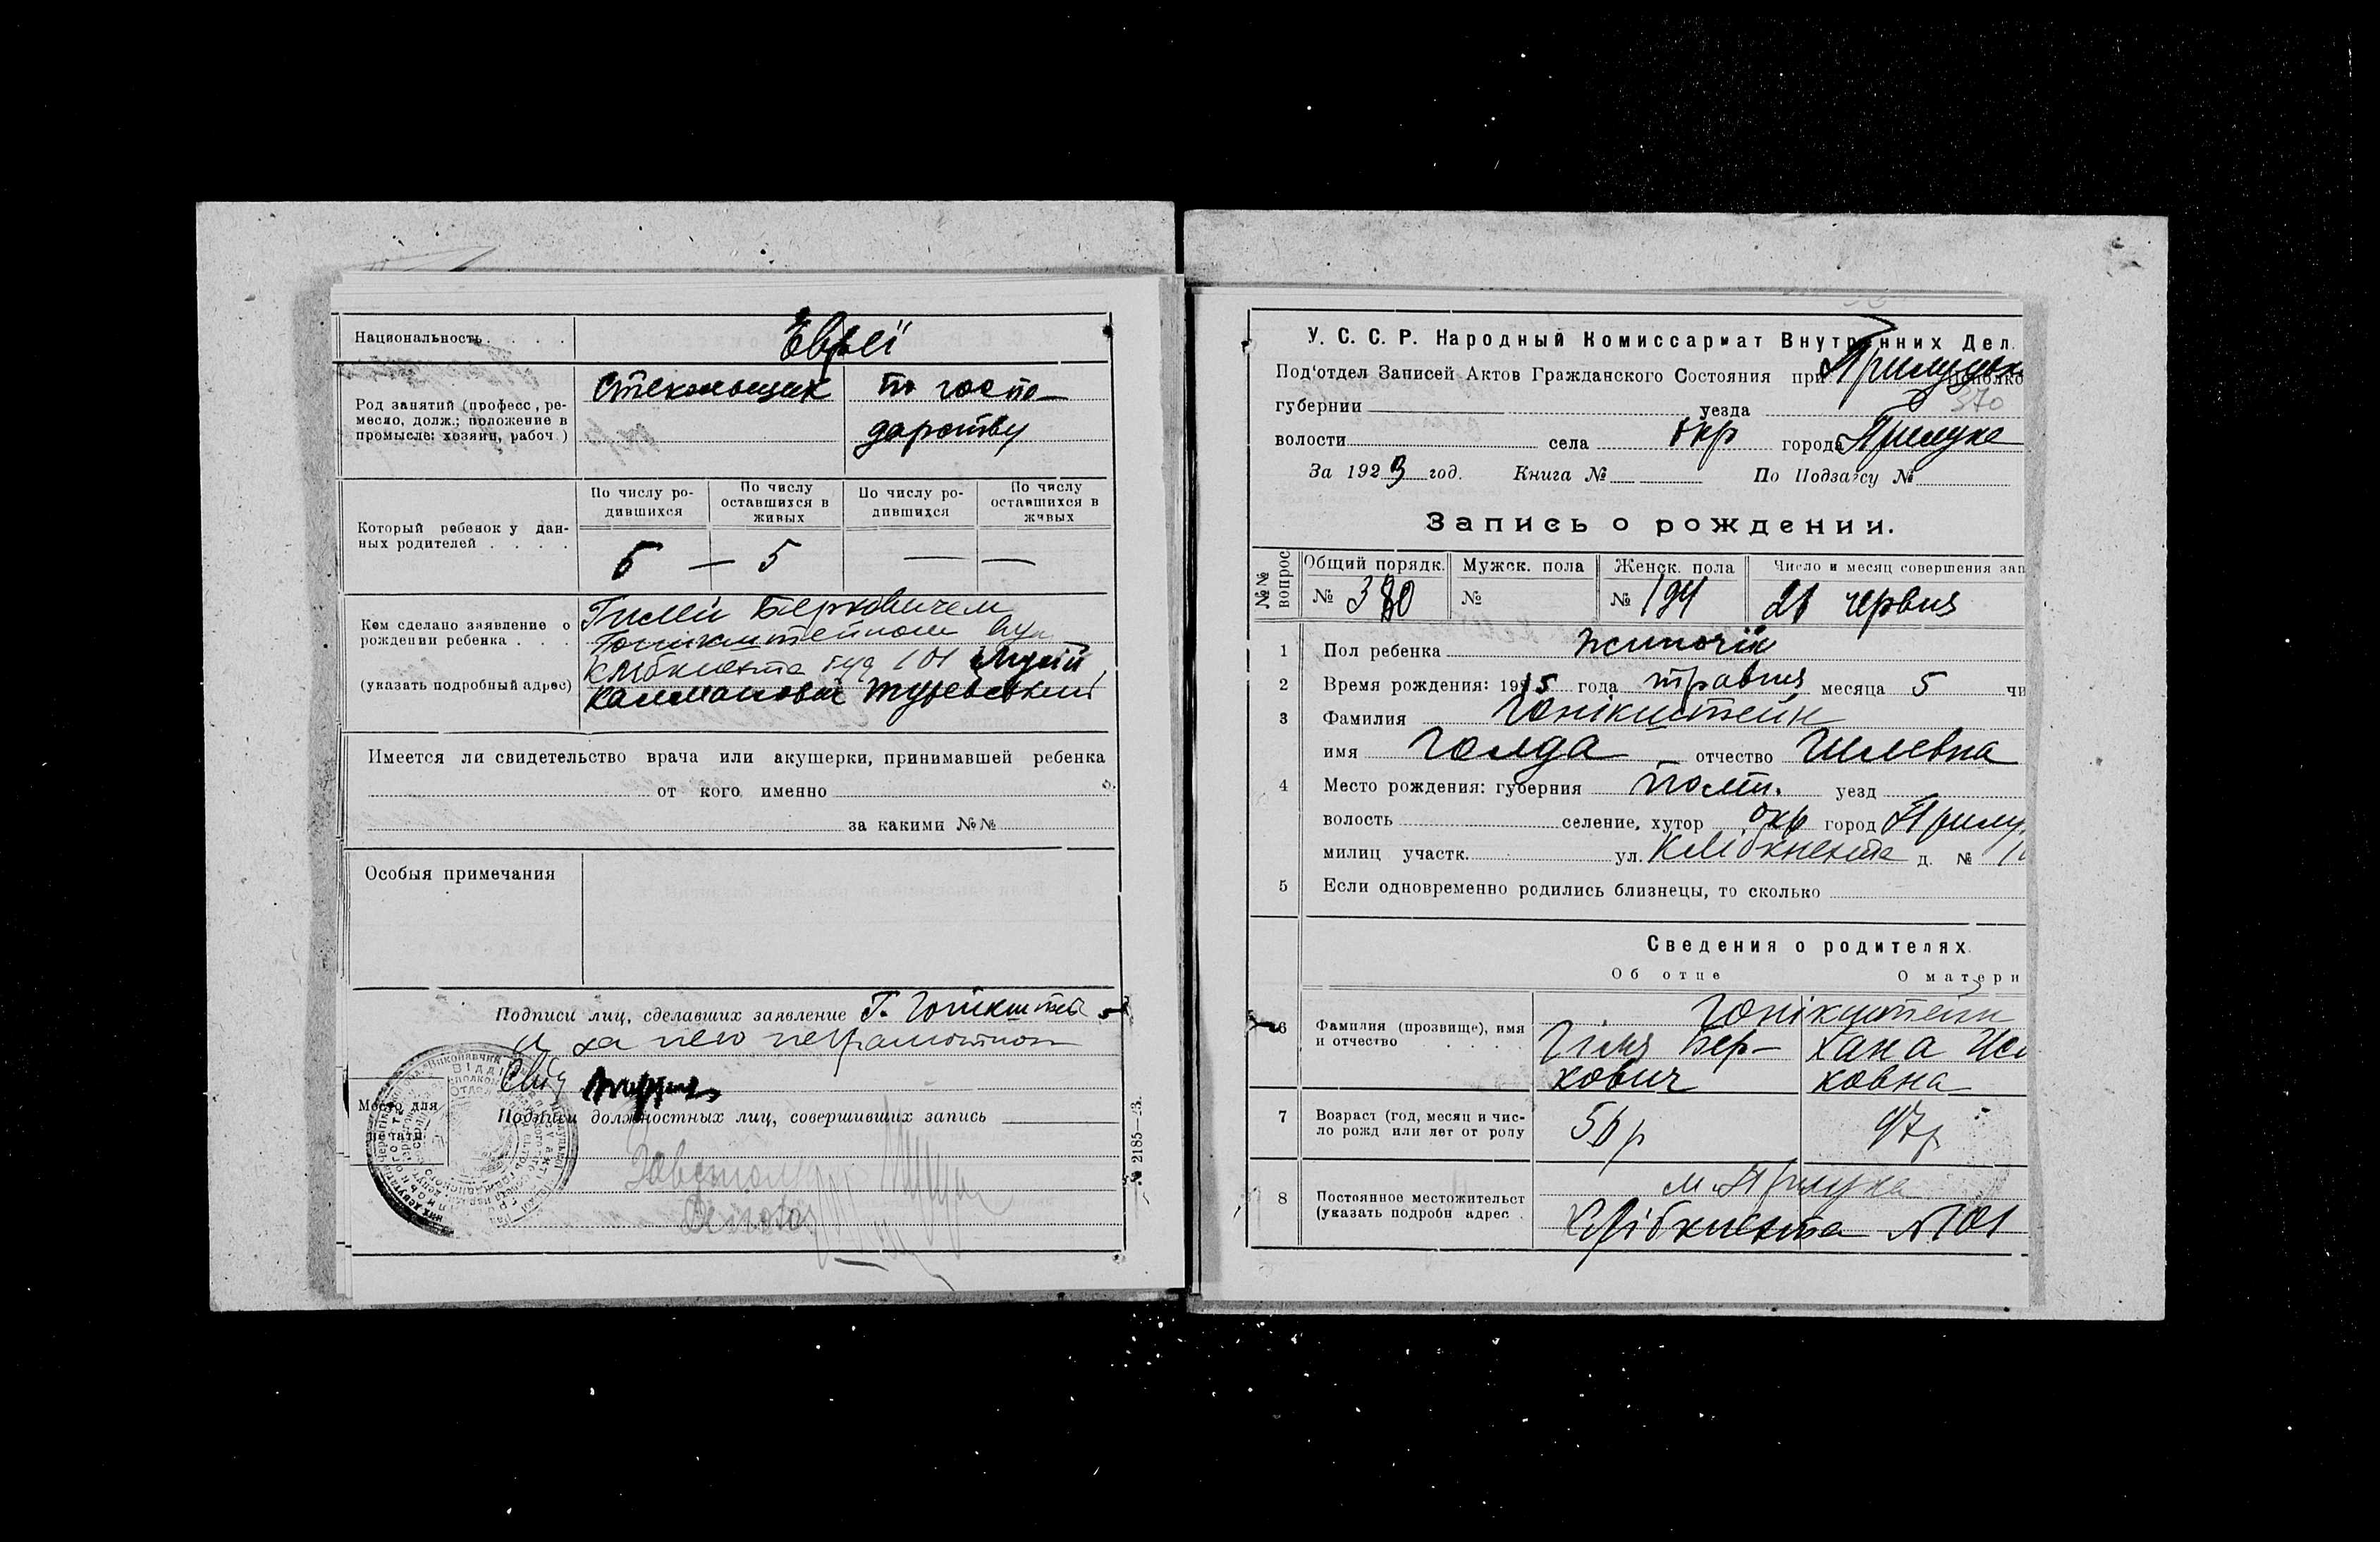 Национальность . . . . Євреї
Род занятий (професс, ре-
месло, долж.; положение в
промысле: хозяин, рабоч )
Стекольщик
по госпо-
дарству
Который ребенок у дан-
ных родителей . . . .
По числу ро-
дившихся
По числу
оставшихся в
живых
По числу ро-
дившихся
По числу
оставшихся в
живых
5 — 5 — —
Кем сделано заявление о
рождении ребенка . . .
(указать подробный адрес)
Гилей Берковичем
буд 101
Калманович
Имеется ли свидетельство врача или акушерки, принимавшей ребенка
от кого именно
за какими №№
Особыя примечания
Подписи лиц, сделавших заявление Г.
за него неграмотного
Место для
печати
Подписи должностных лиц, совершивших запись
2185—23.
У. С. С. Р. Народный Комиссариат Внутренних Дел.
Под'отдел Записей Актов Гражданского Состояния при
370
губернии уезда
волости села окр города Прилуке
За 1923 год. Книга № По Подзагсу №
Запись о рождении.
№№ вопрос
Общий порядк. Мужск. пола Женск. пола Число и месяц совершения зап
№ 380 № № 194 21 червня
1 Пол ребенка жиночій
2 Время рождения: 1915 года травня месяца 5 чи
3 Фамилия Гонікштейн
имя Голда отчество Гилевна
4 Место рождения: губерния Полт. уезд
волость селение, хутор окр город Прилу
милиц участк. ул. К.Лібкнехта д. № 1
5 Если одновременно родились близнецы, то сколько
Сведения о родителях.
Об отце О матери
6 Фамилия (прозвище), имя
и отчество . . . .
Гонікштейн
Гіля Бер-
кович
Хана
ковна
7 Возраст (год, месяц и чис-
ло рожд или лет от роду
56 р
47 р
8 Постоянное местожительст
(указать подробн адрес .
м. Прилуке
К Лібкнехта № 101